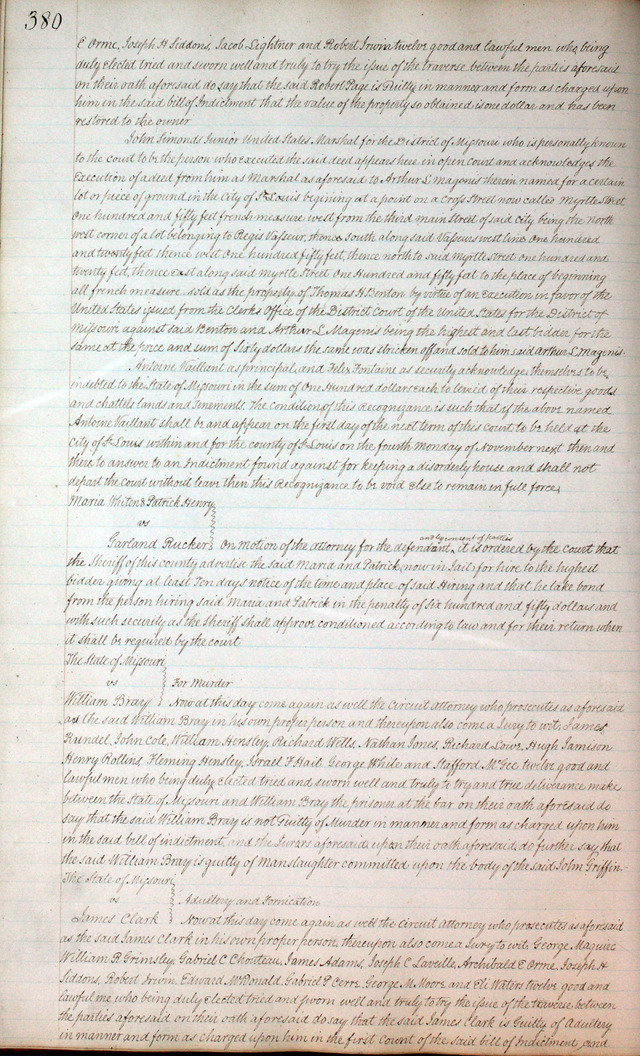 380
E Orme, Joseph H Siddons, Jacob Lightner and Robert Irwin twelve good and lawful men who being
duly Elected tried and sworn well and truly to try the issue of the traverse between the parties aforesaid
on their oath aforesaid do say that the said Robert Page is Guilty in manner and form as charged upon
him in the said bill of Indictment that the value of the property so obtained is one dollar and has been
restored to the owner
John Simonds Junior United States Marshal for the District of Missouri who is personally known
to the court to be the person who executed the said deed appears here in open court and acknowledges the
Execution of a deed from him as Marshal as aforesaid to Arthur L Magenis therein named for a certain
lot or piece of ground in the City of St Louis begining at a point on a cross Street now called Myrtle Street
One hundred and fifty feet french measure west from the third main Street of said city being the North
west corner of a lot belonging to Regis Vasseur, thence south along said Vasseurs west line One hundred
and twenty feet thence west One hundred fifty feet, thence north to said Myrtle Street one hundred and
twenty feet, thence East along said Myrtle Street One Hundred and fifty feet to the place of beginning
all french measure. sold as the property of Thomas H Benton by virtue of an Execution in favor of the
United States issued from the Clerks Office of the District Court of the United States for the District of
Missouri against said Benton and Arthur L Magenis being the highest and last bidder for the
same at the price and sum of Sixty dollars the same was stricken off and sold to him said Arthur L Magenis.
Antoine Vaillant as principal, and Felix Fontaine as security acknowledge themselves to be
indebted to the State of Missouri in the sum of One Hundred dollars Each to levied of their respective goods
and chattels lands and Tenements. The condition of this Recognizance is such that if the above named
Antoine Vaillant shall be and appear on the first day of the next term of this court to be held at the
City of St Louis within and for the county of St Louis on the fourth Monday of November next then and
there to answer to an Indictment found against for keeping a disorderly house and shall not
depart the court without leave then this Recognizance to be void Else to remain in full force,
Maria Whiten & Patrick Henry
vs
and by consent of parties
Garland Rucker On motion of the attorney for the defendant, it is ordered by the Court that
the Sheriff of this county advertise the said Maria and Patrick, now in Jail for hire to the highest
bidder giving at least Ten days notice of the time and place of said Hiring and that he take bond
from the person hiring said Maria and Patrick in the penalty of Six hundred and fifty dollars and
with such security as the Sheriff shall approve conditioned according to law and for their return when
it shall be required by the court
The State of Missouri
vs For Murder
William Bray Now at this day come again as well the Circuit Attorney who prosecutes as aforesaid
as the said William Bray in his own proper person and thereupon also come a Jury to wit, James
Rundel, John Cole, William Hensley, Richard Wells, Nathan Jones, Richard Lowe, Hugh Jamison
Henry Rollins, Fleming Hensley, Israel F Hail George White and Stafford McGee twelve good and
lawful men who being duly Elected tried and sworn well and truly to try and true deliverance make
between the State of Missouri and William Bray the prisoner at the bar on their oath aforesaid do
say that the said William Bray is not Guilty of Murder in manner and form as charged upon him
in the said bill of indictment, and the Jurors aforesaid upon their oath aforesaid do further say that
the said William Bray is guilty of Manslaughter committed upon the body of the said John Griffin.
The State of Missouri
vs Adultery and Fornication
James Clark Now at this day come again as well the Circuit Attorney who prosecutes as aforesaid
as the said James Clark in his own proper person, thereupon also come a Jury to wit, George Maguire
William R Grimsley, Gabriel C Chouteau, James Adams, Joseph C Laveille, Archibald E Orme, Joseph H
Siddons, Robert Irwin, Edward McDonald, Gabriel P Cerre, George M Moore and Eli Waters twelve good and
lawful me who being duly Elected tried and sworn well and truly to try the issue of the traverse between
the parties aforesaid on their oath aforesaid do say that the said James Clark is Guilty of Adultery
in manner and form as charged upon him in the first Count of the said bill of Indictment, and